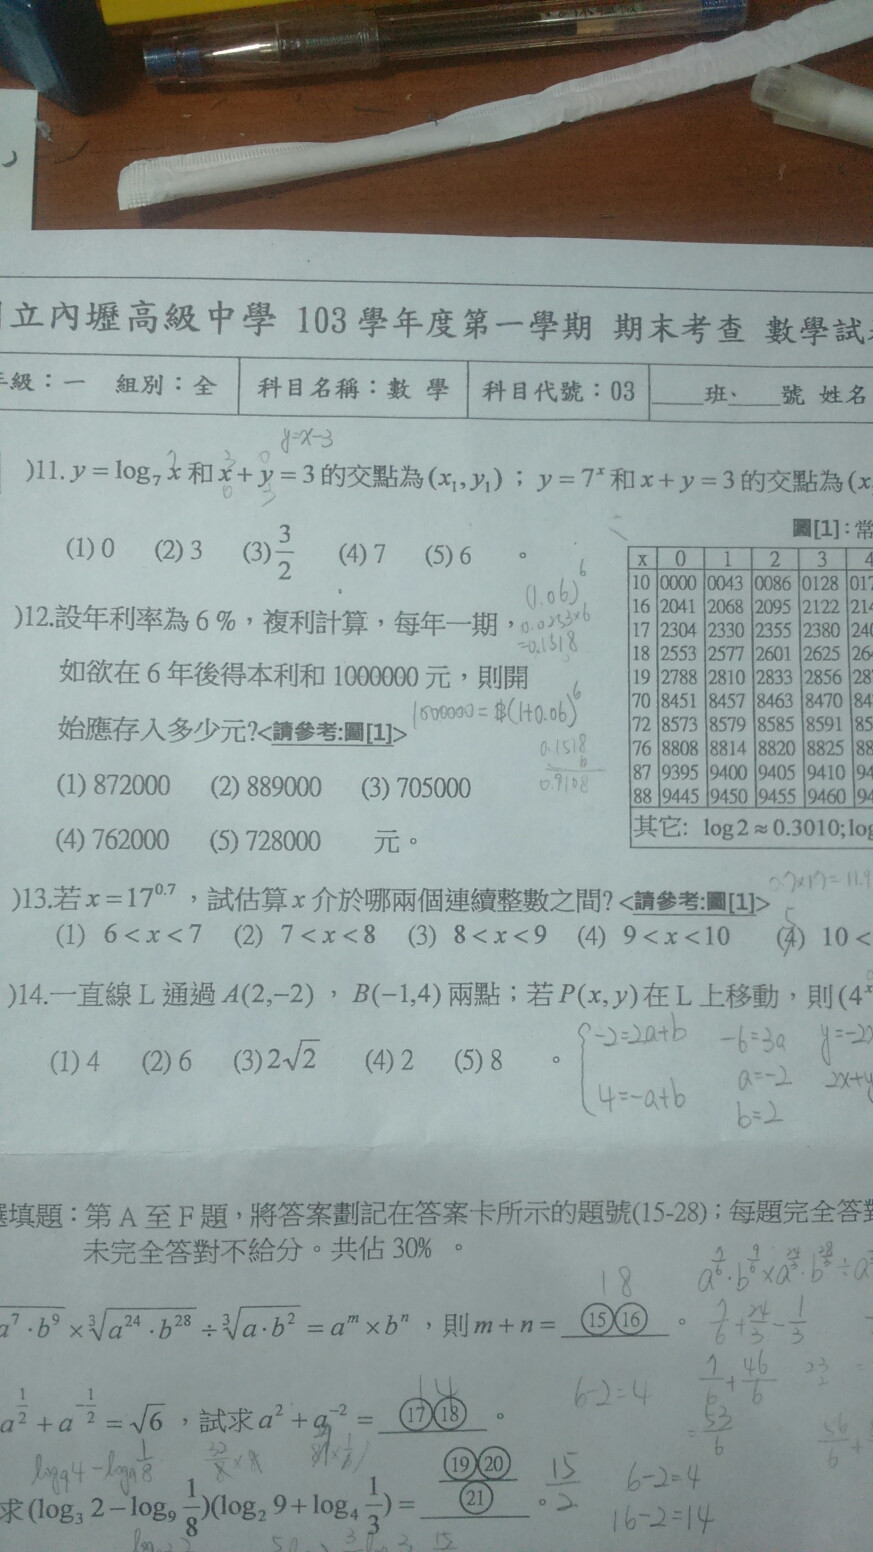 立內壢高級中學 103 學年度第一學期 期末考查 數學試
級：一 組別：全 科目名稱：數 學 科目代號：03 ____班. ____號 姓名
y=x-3
)11. y = log₇ x 和 x + y = 3 的交點為 (x₁, y₁)；y = 7ˣ 和 x + y = 3 的交點為 (x
(1) 0 (2) 3 (3) 3/2 (4) 7 (5) 6 。
圖[1]：常
x 0 1 2 3 4
10 0000 0043 0086 0128 017
16 2041 2068 2095 2122 214
17 2304 2330 2355 2380 240
18 2553 2577 2601 2625 264
19 2788 2810 2833 2856 287
70 8451 8457 8463 8470 84
72 8573 8579 8585 8591 85
76 8808 8814 8820 8825 88
87 9395 9400 9405 9410 94
88 9445 9450 9455 9460 94
其它: log 2 ≈ 0.3010; log
(1.06)⁶
0.0253×6
=0.1518
)12.設年利率為 6 %，複利計算，每年一期，
如欲在 6 年後得本利和 1000000 元，則開
1000000 = $(1+0.06)⁶
始應存入多少元?<請參考:圖[1]>
0.1518
6
0.9108
(1) 872000 (2) 889000 (3) 705000
(4) 762000 (5) 728000 元。
0.7×17=11.9
)13.若 x = 17^0.7，試估算 x 介於哪兩個連續整數之間? <請參考:圖[1]>
(1) 6 < x < 7 (2) 7 < x < 8 (3) 8 < x < 9 (4) 9 < x < 10 (4) 10 <
5
)14.一直線 L 通過 A(2,−2)，B(−1,4) 兩點；若 P(x, y) 在 L 上移動，則 (4ˣ
(1) 4 (2) 6 (3) 2√2 (4) 2 (5) 8 。
-2=2a+b -6=3a y=-2x
4=-a+b a=-2 2x+y
b=2
選填題：第 A 至 F 題，將答案劃記在答案卡所示的題號(15-28)；每題完全答對
未完全答對不給分。共佔 30% 。
18
a⁷ · b⁹ × ∛(a²⁴ · b²⁸) ÷ ∛(a · b²) = aᵐ × bⁿ，則 m + n = ⑮⑯ 。
7/6+24/3-1/3
7/6+46/6
=53/6
14
a^(1/2) + a^(-1/2) = √6，試求 a² + a⁻² = ⑰⑱ 。
6-2=4
求 (log₃ 2 − log₉ 1/8)(log₂ 9 + log₄ 1/3) = ⑲⑳/㉑ 。
15/2
6-2=4
16-2=14